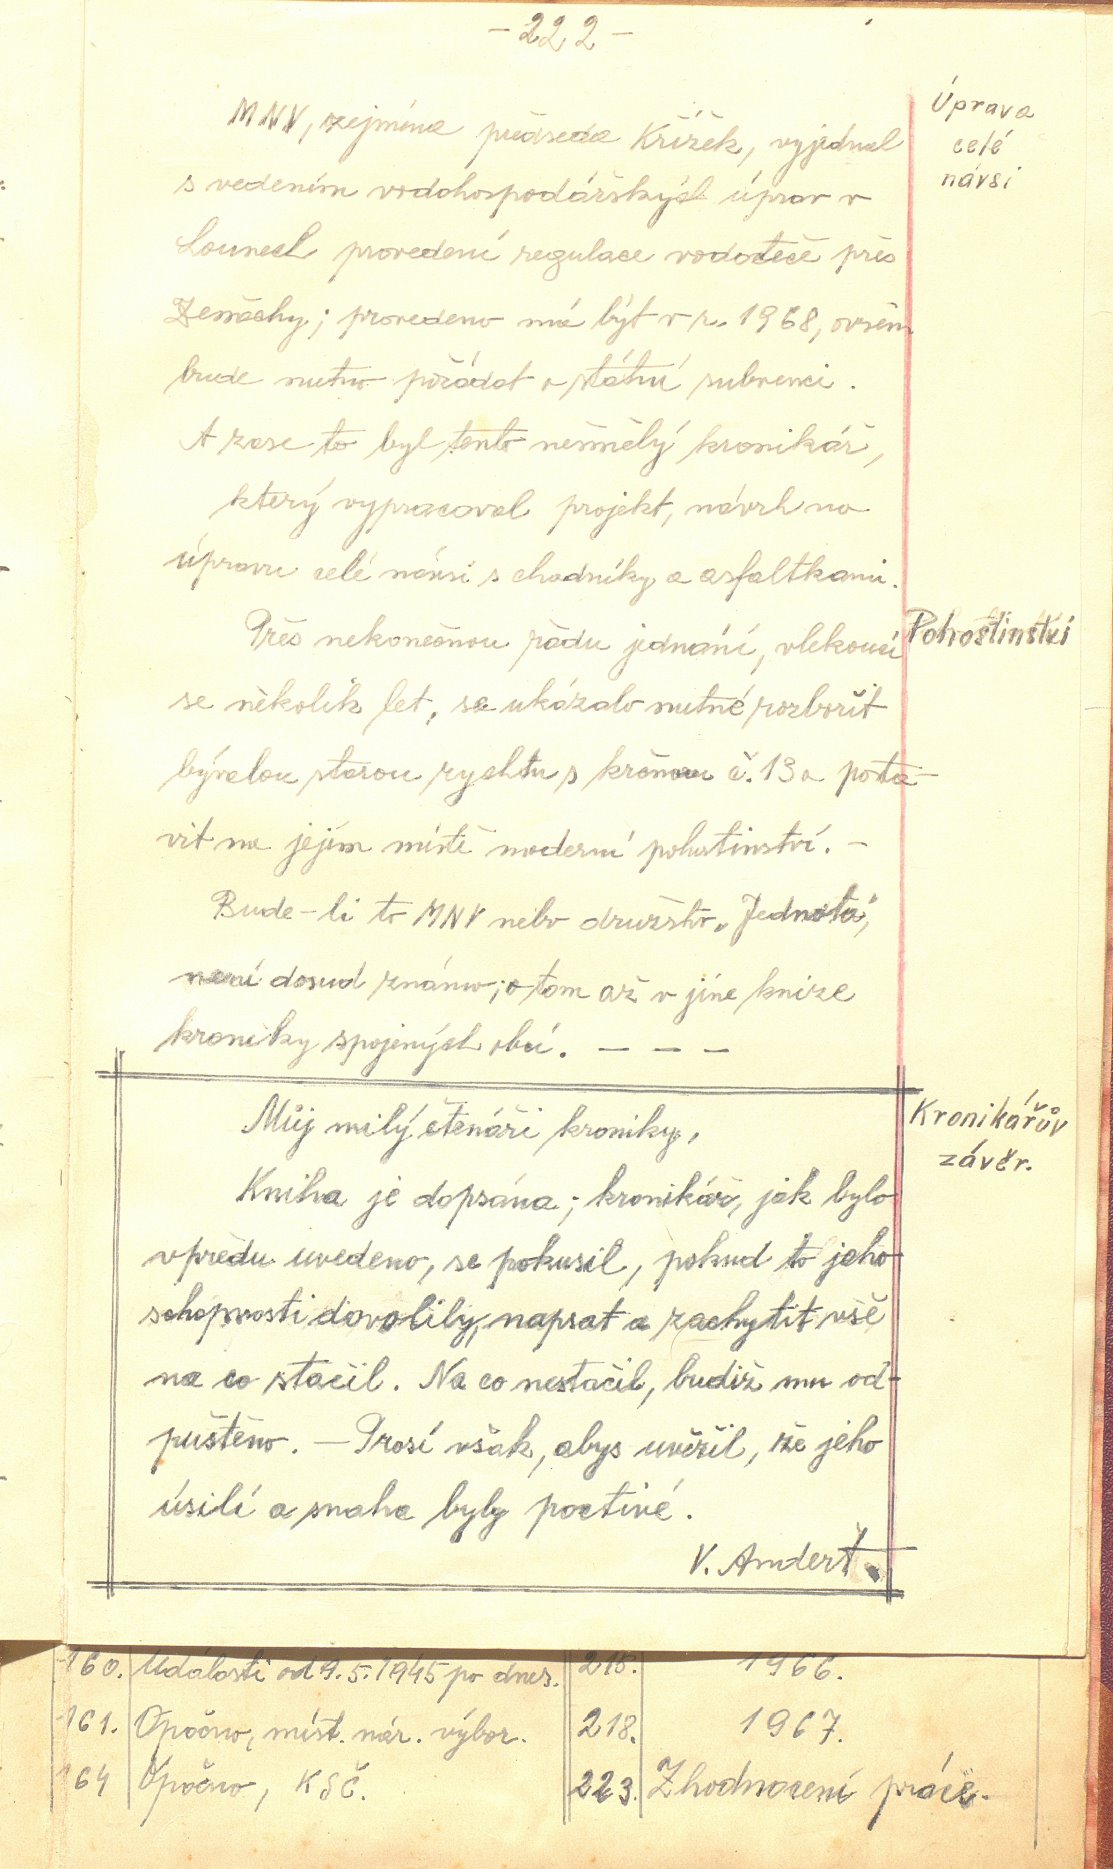 - 222 -
MNV, zejména předseda Křížek, vyjednal
Úprava
celé
návsi
s vedením vodohospodářských úprav v
Lounech provedení regulace vodoteče přes
Zeměchy; provedeno má být v r. 1968, ovšem
bude nutno požádat o státní subvenci.
A zase to byl tento nesmělý kronikář,
který vypracoval projekt, návrh na
úpravu celé návsi s chodníky a asfaltkami.
Přes nekonečnou řadu jednání, vlekoucí
Pohostinství
se několik let, se ukázalo nutné rozbořit
bývalou starou rychtu s krčmou č. 13 a posta-
vit na jejím místě moderní pohostinství. -
Bude-li to MNV nebo družstvo „Jednota“,
není dosud známo; o tom až v jiné knize
kroniky spojených obcí. - - -
Můj milý čtenáři kroniky,
Kronikářův
závěr.
Kniha je dopsána; kronikář, jak bylo
vpředu uvedeno, se pokusil, pokud to jeho
schopnosti dovolily, napsat a zachytit vše
na co stačil. Na co nestačil, budiž mu od-
puštěno. - Prosí však, abys uvěřil, že jeho
úsilí a snaha byly poctivé.
V. Andert.
160. Události od 9.5.1945 po dnes. 218. 1966.
161. Opočno, míst. nár. výbor. 218. 1967.
164 Opočno, KSČ. 223. Zhodnocení práce.